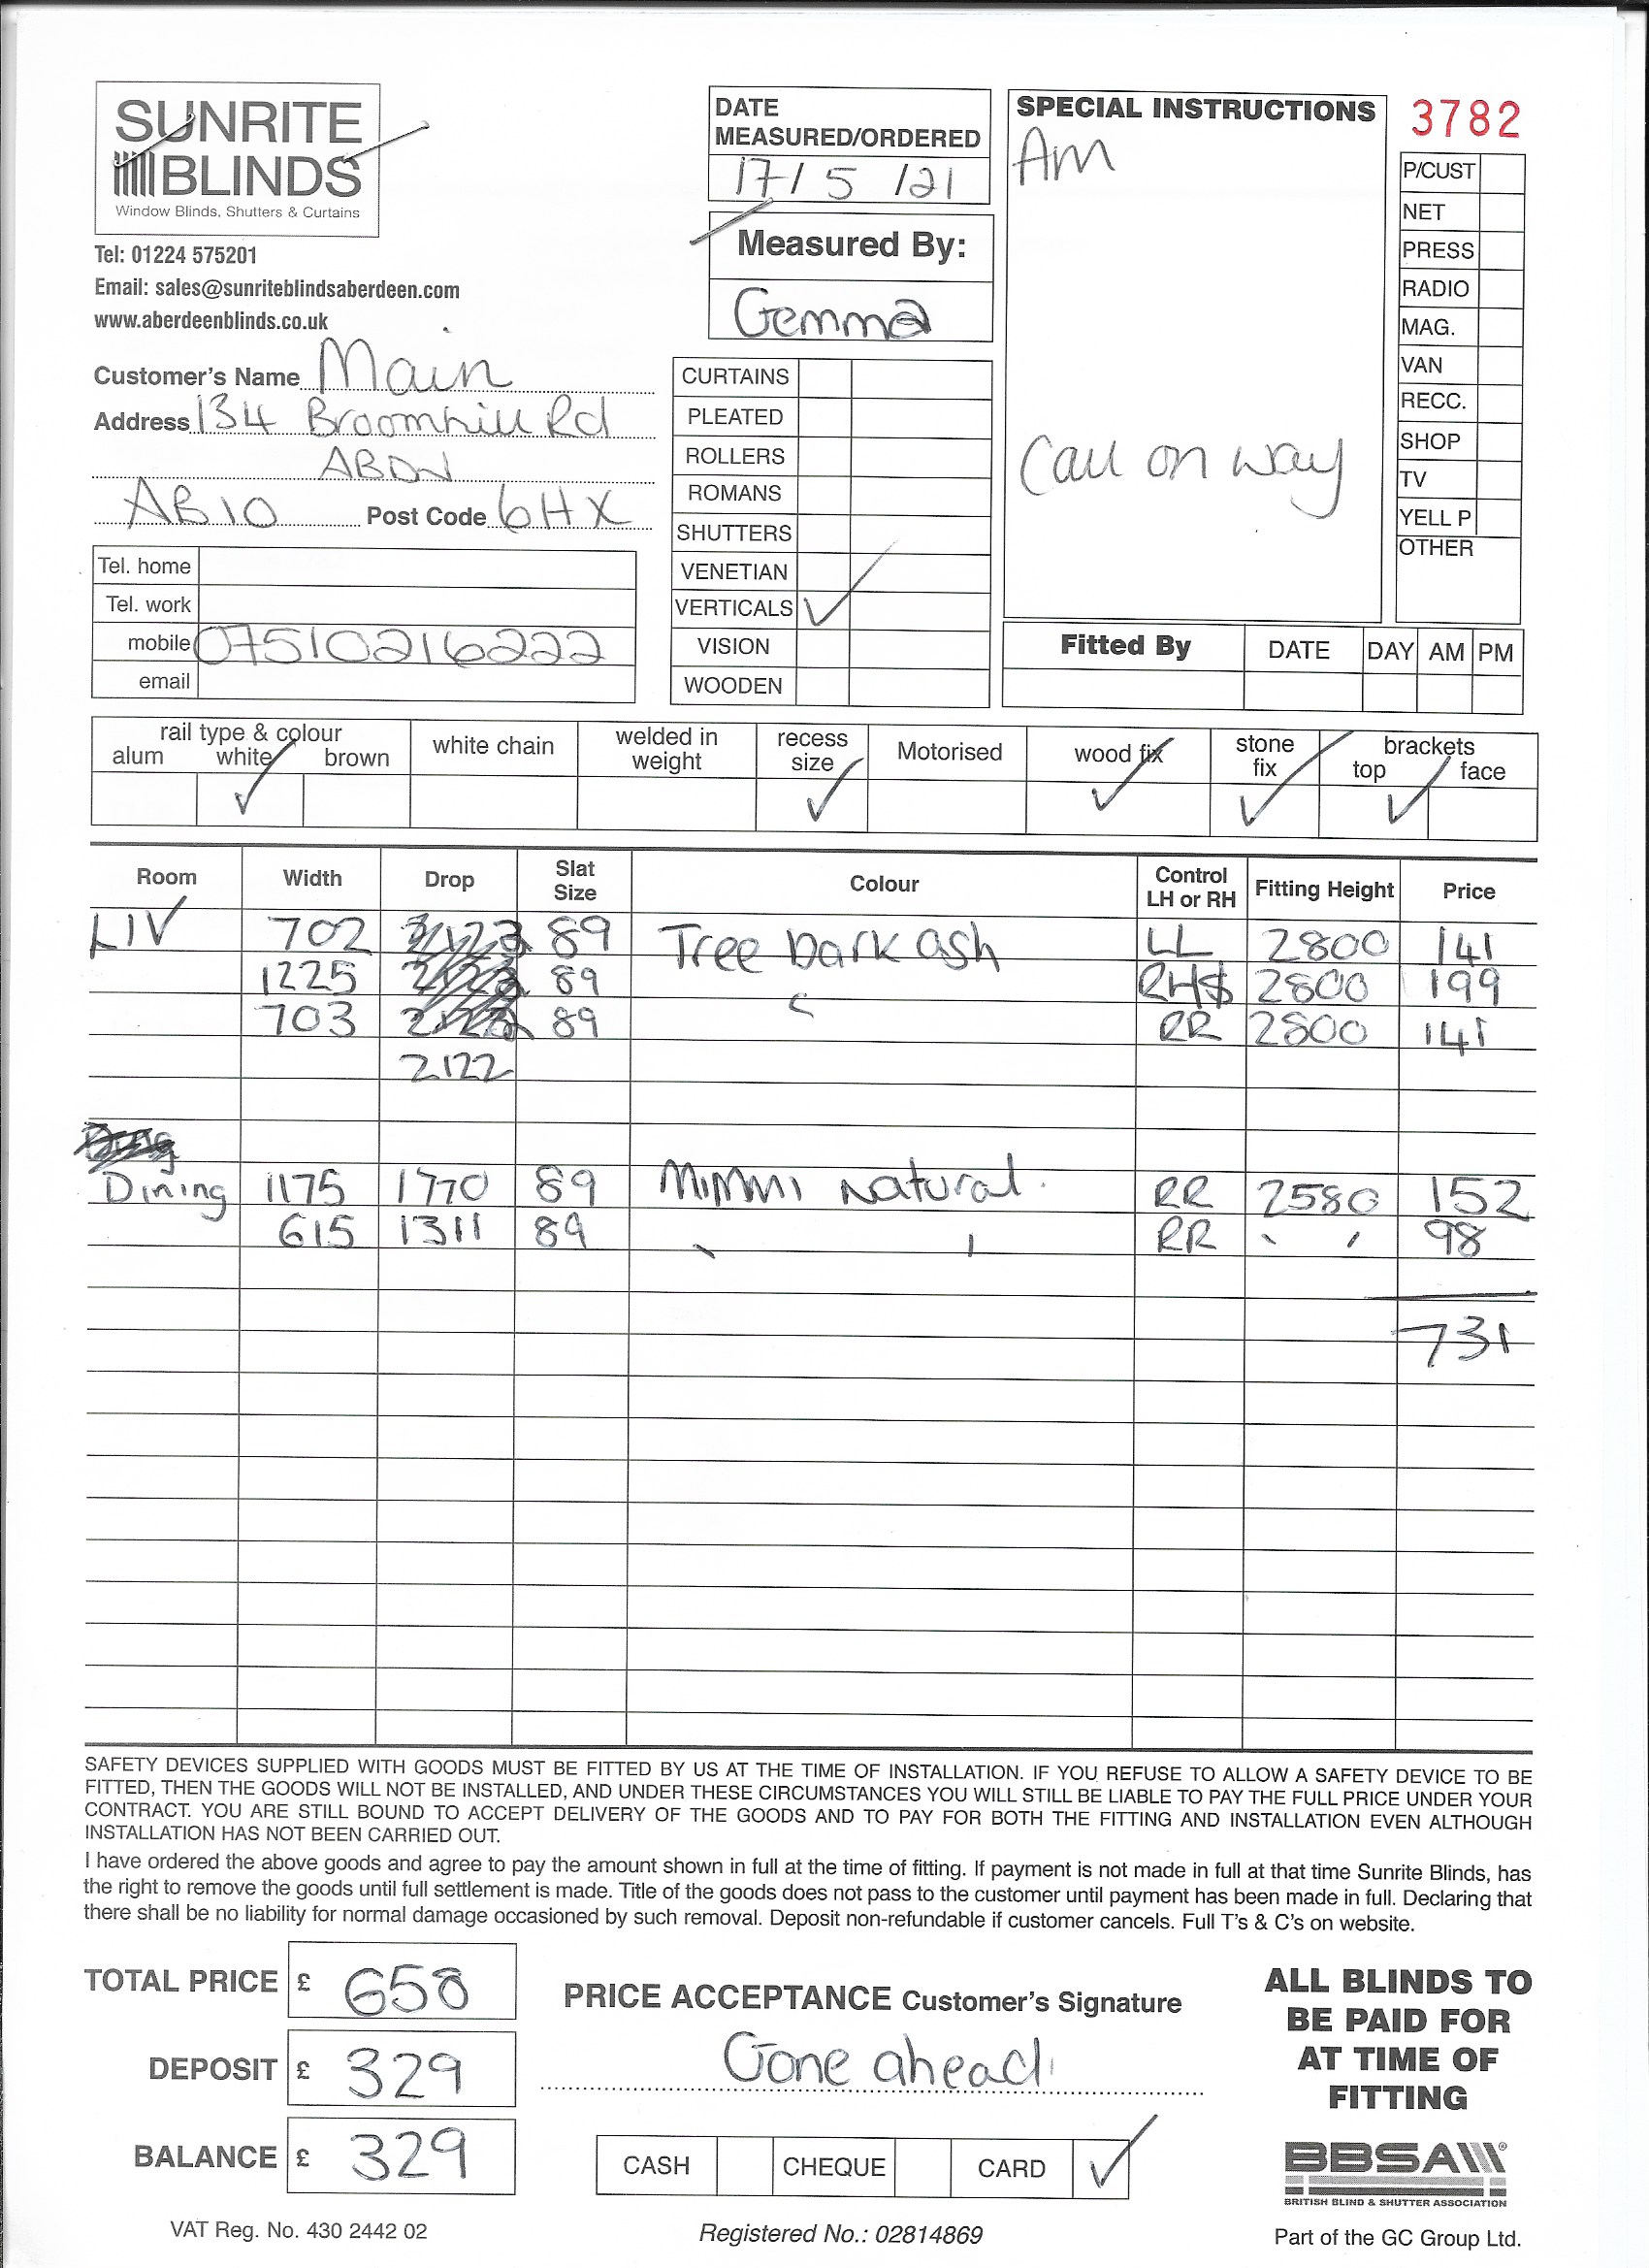 SUNRITE
BLINDS
Window Blinds, Shutters & Curtains
Tel: 01224 575201
Email: sales@sunriteblindsaberdeen.com
www.aberdeenblinds.co.uk
Customer's Name Main
Address 134 Broomhill Rd
ABDN
AB10 Post Code 6HX
Tel. home
Tel. work
mobile 07510216222
email
DATE
MEASURED/ORDERED
17/5/21
Measured By:
Gemma
CURTAINS
PLEATED
ROLLERS
ROMANS
SHUTTERS
VENETIAN
VERTICALS ✓
VISION
WOODEN
SPECIAL INSTRUCTIONS
Am
Call on way
3782
P/CUST
NET
PRESS
RADIO
MAG.
VAN
RECC.
SHOP
TV
YELL P
OTHER
Fitted By DATE DAY AM PM
rail type & colour
alum white brown
white chain
welded in
weight
recess
size
Motorised
wood fix
stone
fix
brackets
top face
✓ ✓ ✓ ✓ ✓
Room Width Drop Slat Size Colour Control LH or RH Fitting Height Price
LIV 702 89 Tree bark ash LL 2800 141
1225 89 2800 199
703 89 RR 2800 141
2122
Dining 1175 1770 89 Mimmi Natural. RR 2580 152
615 1311 89 RR 98
731
SAFETY DEVICES SUPPLIED WITH GOODS MUST BE FITTED BY US AT THE TIME OF INSTALLATION. IF YOU REFUSE TO ALLOW A SAFETY DEVICE TO BE
FITTED, THEN THE GOODS WILL NOT BE INSTALLED, AND UNDER THESE CIRCUMSTANCES YOU WILL STILL BE LIABLE TO PAY THE FULL PRICE UNDER YOUR
CONTRACT. YOU ARE STILL BOUND TO ACCEPT DELIVERY OF THE GOODS AND TO PAY FOR BOTH THE FITTING AND INSTALLATION EVEN ALTHOUGH
INSTALLATION HAS NOT BEEN CARRIED OUT.
I have ordered the above goods and agree to pay the amount shown in full at the time of fitting. If payment is not made in full at that time Sunrite Blinds, has
the right to remove the goods until full settlement is made. Title of the goods does not pass to the customer until payment has been made in full. Declaring that
there shall be no liability for normal damage occasioned by such removal. Deposit non-refundable if customer cancels. Full T's & C's on website.
TOTAL PRICE £ 658
DEPOSIT £ 329
BALANCE £ 329
PRICE ACCEPTANCE Customer's Signature
Gone ahead
CASH CHEQUE CARD ✓
ALL BLINDS TO
BE PAID FOR
AT TIME OF
FITTING
BBSA
BRITISH BLIND & SHUTTER ASSOCIATION
VAT Reg. No. 430 2442 02
Registered No.: 02814869
Part of the GC Group Ltd.